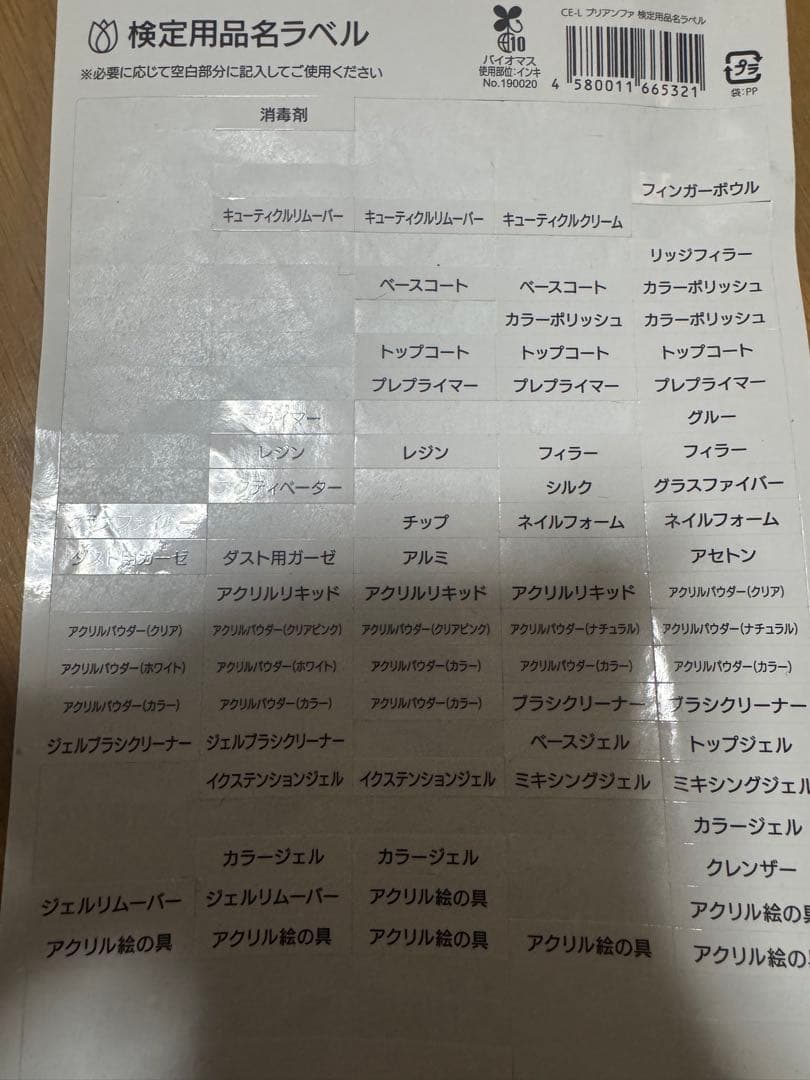 検定用品名ラベル
※必要に応じて空白部分に記入してご使用ください
10
バイオマス
使用部位:インキ
No.190020
CE-L プリアンファ 検定用品名ラベル
4 580011 665321
プラ
袋:PP
消毒剤
フィンガーボウル
キューティクルリムーバー キューティクルリムーバー キューティクルクリーム
リッジフィラー
ベースコート ベースコート カラーポリッシュ
カラーポリッシュ カラーポリッシュ
トップコート トップコート トップコート
プレプライマー プレプライマー プレプライマー
プライマー グルー
レジン レジン フィラー フィラー
アクティベーター シルク グラスファイバー
チップ ネイルフォーム ネイルフォーム
ダスト用ガーゼ ダスト用ガーゼ アルミ アセトン
アクリルリキッド アクリルリキッド アクリルリキッド アクリルパウダー(クリア)
アクリルパウダー(クリア) アクリルパウダー(クリアピンク) アクリルパウダー(クリアピンク) アクリルパウダー(ナチュラル) アクリルパウダー(ナチュラル)
アクリルパウダー(ホワイト) アクリルパウダー(ホワイト) アクリルパウダー(カラー) アクリルパウダー(カラー) アクリルパウダー(カラー)
アクリルパウダー(カラー) アクリルパウダー(カラー) アクリルパウダー(カラー) ブラシクリーナー ブラシクリーナー
ジェルブラシクリーナー ジェルブラシクリーナー ベースジェル トップジェル
イクステンションジェル イクステンションジェル ミキシングジェル ミキシングジェル
カラージェル
カラージェル カラージェル クレンザー
ジェルリムーバー ジェルリムーバー アクリル絵の具 アクリル絵の具
アクリル絵の具 アクリル絵の具 アクリル絵の具 アクリル絵の具 アクリル絵の